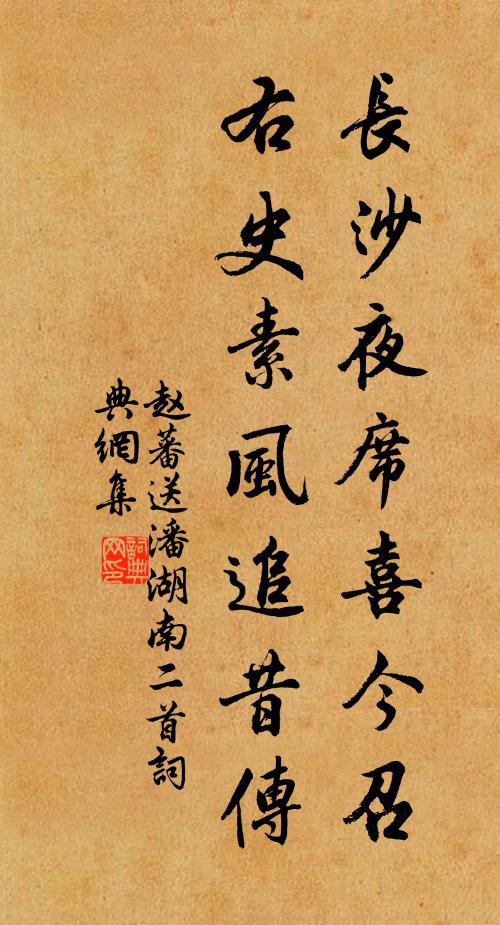 長沙夜席喜今召
右史素風追昔傳
赵蕃送潘湖南二首詞
典網集
詞典
网印